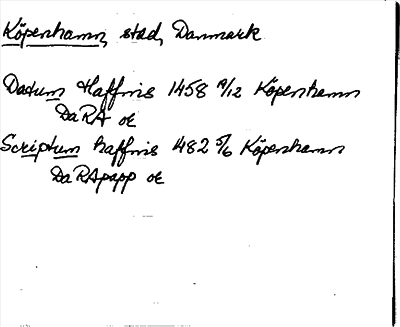 Köpenhamn, stad, Danmark
Datum Haffnis 1458 19/12 Köpenhamn
DaRA oe
Scriptum haffnis 1482 5/6 Köpenhamn
DaRApapp oe